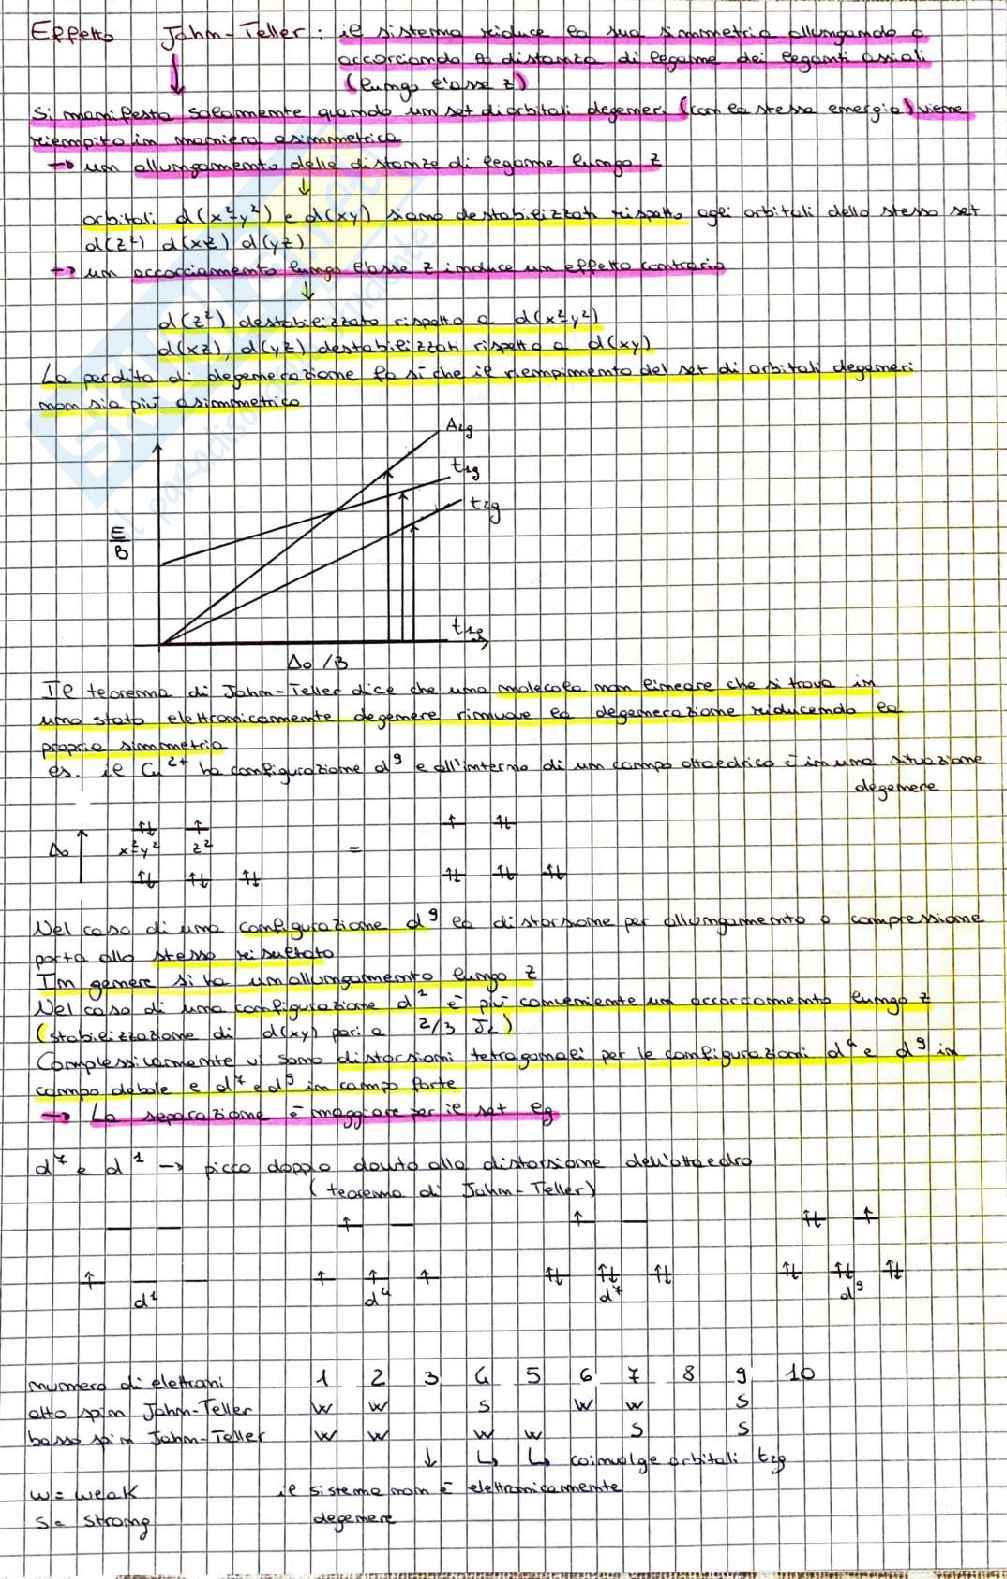 Effetto Jahn-Teller: il sistema riduce la sua simmetria allungando o
accorciando la distanza di legame dei leganti assiali
(lungo l'asse z)
Si manifesta solamente quando un set di orbitali degeneri (con la stessa energia) viene
riempito in maniera asimmetrica
→ un allungamento della distanza di legame lungo z
↓
orbitali d(x²-y²) e d(xy) siano destabilizzati rispetto agli orbitali dello stesso set
d(z²) d(xz) d(yz)
→ un accorciamento lungo l'asse z induce un effetto contrario
↓
d(z²) destabilizzato rispetto a d(x²-y²)
d(xz), d(yz) destabilizzati rispetto a d(xy)
La perdita di degenerazione fa sì che il riempimento del set di orbitali degeneri
non sia più asimmetrico
A2g
t1g
t2g
E/B
t1g
Δo/B
Il teorema di Jahn-Teller dice che una molecola non lineare che si trova in
uno stato elettronicamente degenere rimuove la degenerazione riducendo la
propria simmetria
es. il Cu²⁺ ha configurazione d⁹ e all'interno di un campo ottaedrico è in una situazione
degenere
Δo x²-y² z² =
Nel caso di una configurazione d⁹ la distorsione per allungamento o compressione
porta allo stesso risultato
In genere si ha un allungamento lungo z
Nel caso di una configurazione d² è più conveniente un accorciamento lungo z
(stabilizzazione di d(xy) pari a 2/3
Complessivamente vi sono distorsioni tetragonali per le configurazioni d⁴ e d⁹ in
campo debole e d⁷ e d⁹ in campo forte
→ La separazione è maggiore per il set eg
d⁷ e d¹ → picco doppio dovuto alla distorsione dell'ottaedro
(teorema di Jahn-Teller)
d¹ d⁴ d⁷ d⁹
numero di elettroni 1 2 3 4 5 6 7 8 9 10
alto spin Jahn-Teller W W S W W S
basso spin Jahn-Teller W W W W S S
↓ ↳ ↳ coinvolge orbitali t2g
w = weak il sistema non è elettronicamente
S = strong degenere